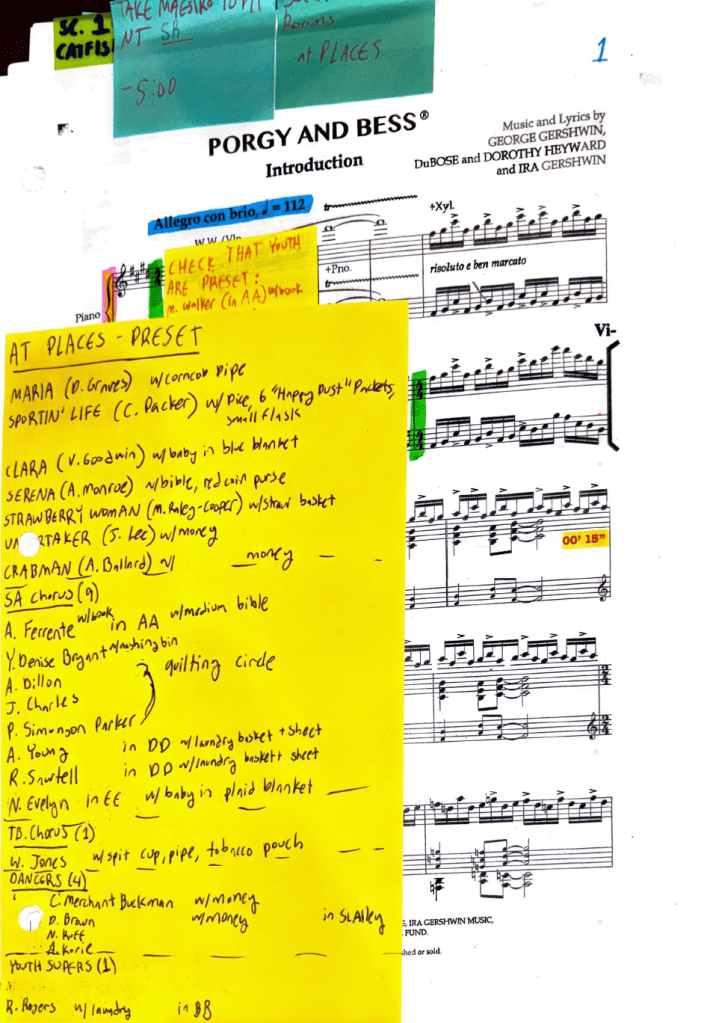 SC. 1
CATFIS
TAKE MAESTRO TO PIT
NT SB
-5:00
Rooms
at PLACES
1
PORGY AND BESS®
Introduction
Music and Lyrics by
GEORGE GERSHWIN,
DuBOSE and DOROTHY HEYWARD
and IRA GERSHWIN
Allegro con brio, ♩ = 112
W.W./Vln.
tr
+Xyl.
+Pno.
tr
risoluto e ben marcato
Piano
CHECK THAT YOUTH
ARE PRESET:
M. Walker (in AA) w/book
Vi-
AT PLACES - PRESET
MARIA (D. Graves) w/corncob pipe
SPORTIN' LIFE (C. Packer) w/ Dice, 6 "Happy Dust" Packets,
small flask
CLARA (V. Goodwin) w/baby in blue blanket
SERENA (A. Monroe) w/bible, red coin purse
STRAWBERRY WOMAN (M. Raley-Cooper) w/straw basket
UN RTAKER (S. Lee) w/money
CRABMAN (A. Ballard) w/ money
00' 15"
SA Chorus (9)
A. Ferrente w/book in AA w/medium bible
Y. Denise Bryant w/washing bin
A. Dillon
quilting circle
J. Charles
P. Simonson Parker
A. Young in DD w/laundry basket + sheet
R. Sawtell in DD w/laundry basket + sheet
N. Evelyn in EE w/ baby in plaid blanket
TB. Chorus (1)
W. Jones w/spit cup, pipe, tobacco pouch
DANCERS (4)
C. Merchant Buckman w/money
D. Brown w/money in SL Alley
N. Ruff
A. Korie
YOUTH SUPERS (1)
R. Rogers w/ laundry in BB
, IRA GERSHWIN MUSIC,
FUND.
hed or sold.